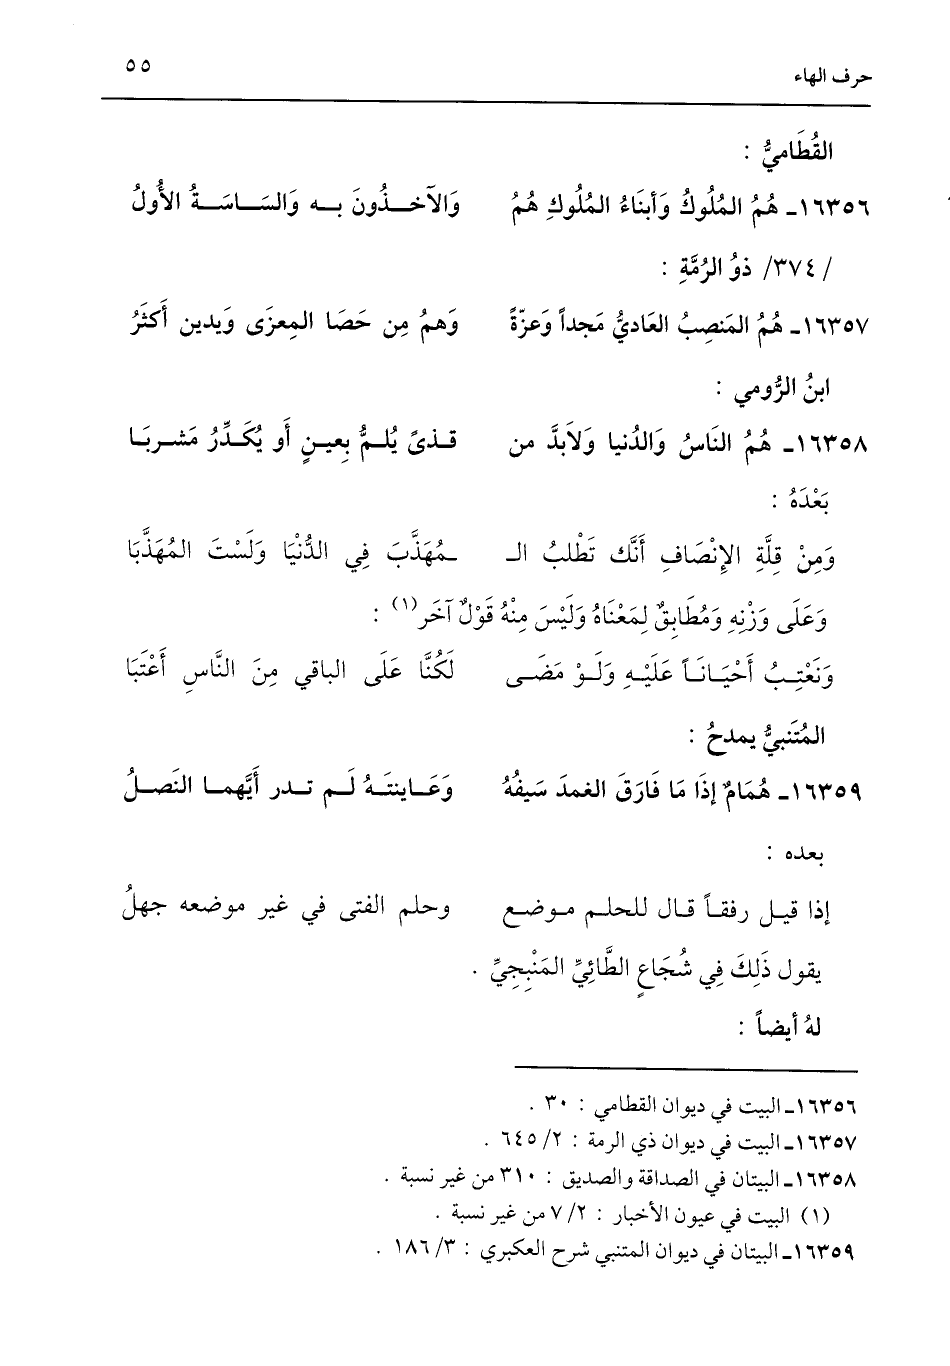 حرف الهاء ٥٥
القُطَاميُّ :
١٦٣٥٦ـ هُمُ المُلُوكُ وَأبنَاءُ المُلُوكِ هُمُ وَالآخــذُونَ بــه وَالسَــاسَــةُ الأُولُ
/ ٣٧٤/ ذوُ الرُمَّةِ :
١٦٣٥٧ـ هُمُ المَنصِبُ العَاديُّ مَجداً وَعزّةً وَهمُ مِن حَصَا المِعزَى وَيدين أَكثَرُ
ابنُ الرُّومي :
١٦٣٥٨ـ هُمُ النَاسُ وَالدُنيا وَلاَبدَّ من قــذىً يُلــمُّ بِعيــنٍ أَو يُكَــدِّرُ مَشــربَا
بَعْدَهُ :
وَمِنْ قِلَّةِ الإِنْصَافِ أَنَّك تَطْلبُ الـ ـمُهَذَّبَ فِي الدُّنْيَا وَلَسْتَ المُهَذَّبَا
وَعَلَى وَزْنِهِ وَمُطَابِقٌ لِمَعْنَاهُ وَلَيْسَ مِنْهُ قَوْلٌ آخَر(١) :
وَنَعْتِــبُ أَحْيَــانَــاً عَلَيْــهِ وَلَــوْ مَضَــى لَكُنَّا عَلَى الباقي مِنَ النَّاسِ أَعْتَبَا
المُتَنبيُّ يمدحُ :
١٦٣٥٩ـ هُمَامٌ إذَا مَا فَارَقَ الغمدَ سَيفُهُ وَعَــاينتَــهُ لَــم تــدر أَيَّهمــا النَصــلُ
بعده :
إذا قيــل رفقــاً قــال للحلــم مــوضــع وحلم الفتى في غير موضعه جهلُ
يقول ذَلِكَ فِي شُجَاعٍ الطَّائِيِّ المَنْبِجِيِّ .
لهُ أيضاً :
١٦٣٥٦ـ البيت في ديوان القطامي : ٣٠ .
١٦٣٥٧ـ البيت في ديوان ذي الرمة : ٢/ ٦٤٥ .
١٦٣٥٨ـ البيتان في الصداقة والصديق : ٣١٠ من غير نسبة .
(١) البيت في عيون الأخبار : ٢/ ٧ من غير نسبة .
١٦٣٥٩ـ البيتان في ديوان المتنبي شرح العكبري : ٣/ ١٨٦ .